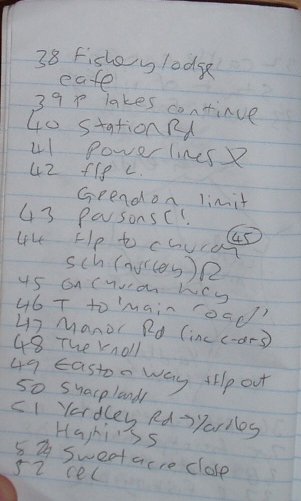 38 Fishery lodge
cafe
39 P lakes continue
40 Station Rd
41 Power lines X
42 f/p L.
Grendon limit
43 Parsons Cl.
44 f/p to church (45)
Sch
45 on church way
46 T to 'main road'
47 Manor Rd (inc c-de-s)
48 The Knoll
49 Easton Way + f/p out
50 Sharplands
51 Yardley Rd → Yardley
Hastings
52 Sweetacre Close
52 rec